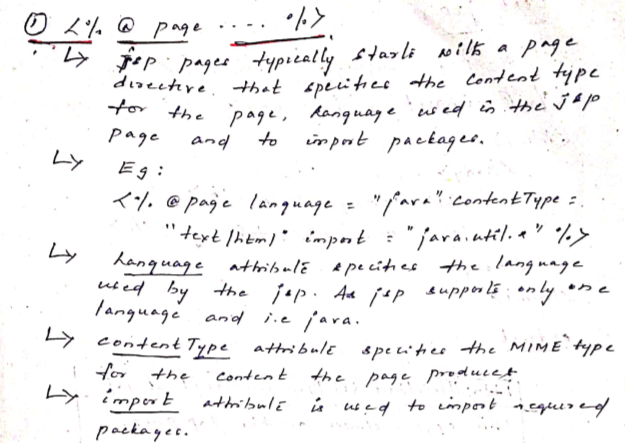 ① <% @ page .... %>
↳ Jsp pages typically starts with a page
directive that specifies the content type
for the page, language used in the jsp
page and to import packages.
↳ Eg:
<% @ page language = "java" contentType =
"text/html" import = "java.util.*" %>
↳ Language attribute specifies the language
used by the jsp. As jsp supports only one
language and i.e java.
↳ content Type attribute specifies the MIME type
for the content the page produces
↳ import attribute is used to import required
packages.